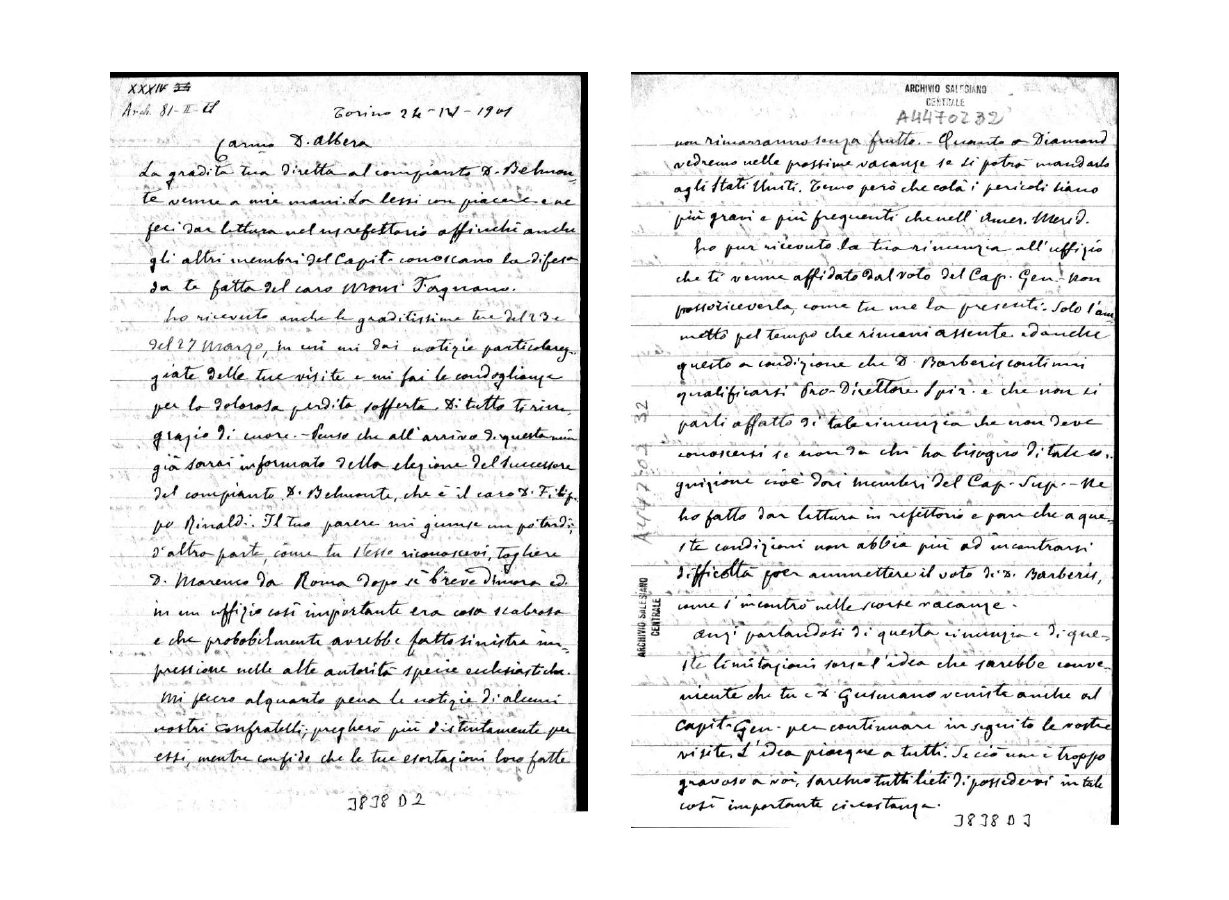 XXXIV
Arch. 81-II-
Torino 24-IV-1901
Carmo D. Albera
La gradita tua diretta al compianto D. Belmon-
te venne a mie mani. La lessi con piacere e ne
feci dar lettura nel refettorio affinchè anche
gli altri membri del Capit. conoscano la difesa
da te fatta del caro Mons Fagnano.
Ho ricevuto anche le graditissime tue del 23 e
del 27 Marzo, in cui mi dai notizie particolareg-
giate delle tue visite e mi fai le condoglianze
per la dolorosa perdita sofferta. Di tutto ti rin-
grazio di cuore. - Penso che all'arrivo di questa mia
già sarai informato della elezione del successore
del compianto D. Belmonte, che è il caro D. Filip-
po Rinaldi. Il tuo parere mi giunse un po' tardi;
d'altra parte, come tu stesso riconoscevi, togliere
D. Marenco da Roma dopo sì breve dimora ed
in un uffizio così importante era cosa scabrosa
e che probabilmente avrebbe fatto sinistra im-
pressione nelle alte autorità specie ecclesiastiche.
Mi fecero alquanto pena le notizie di alcuni
nostri Confratelli; pregherò più distintamente per
essi, mentre confido che le tue esortazioni loro fatte
3838 D 2
ARCHIVIO SALESIANO
CENTRALE
A4470232
non rimarranno senza frutto. - Quanto a Diamond
vedremo nelle prossime vacanze se si potrà mandarlo
agli Stati Uniti. Temo però che colà i pericoli siano
più gravi e più frequenti che nell'Amer. Merid.
Ho pur ricevuto la tua rinunzia all'uffizio
che ti venne affidato dal voto del Cap. Gen. Non
posso riceverla, come tu me la presenti. Solo l'am-
metto pel tempo che rimani assente ed anche
questo a condizione che D. Barberis continui
qualificarsi Pro-Direttore Spir. e che non si
parli affatto di tale rinunzia che non deve
conoscersi se non da chi ha bisogno di tale co-
gnizione cioè dai membri del Cap. Sup. - Ne
ho fatto dar lettura in refettorio e pare che a que-
ste condizioni non abbia più ad incontrarsi
difficoltà per ammettere il voto di D. Barberis,
come s'incontrò nelle scorse vacanze.
Anzi parlandosi di questa rinunzia e di que-
ste limitazioni sorse l'idea che sarebbe conve-
niente che tu e D Gusmano veniste anche al
Capit. Gen. per continuare in seguito le vostre
visite. L'idea piacque a tutti. Se ciò non è troppo
gravoso a voi, saremo tutti lieti di possedervi in tale
così importante circostanza.
3838 D 3
A4470232
ARCHIVIO SALESIANO
CENTRALE